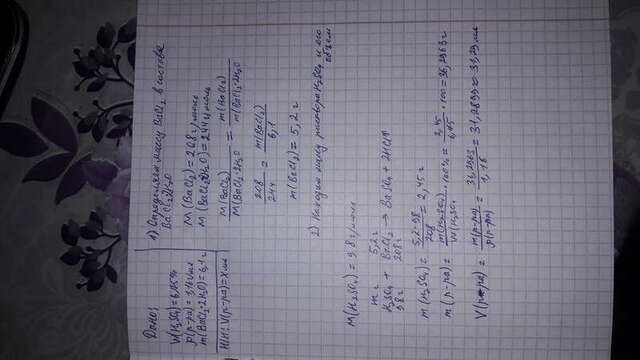 Дано:
W(H2SO4) = 6,75%
ρ(р-ра) = 1,16 г/мл
m(BaCl2·2H2O) = 6,1 г
Найти: V(р-ра) = x мл
1) Определяем массу BaCl2 в составе
BaCl2·2H2O
M(BaCl2) = 208 г/моль
M(BaCl2·2H2O) = 244 г/моль
M(BaCl2) / M(BaCl2·2H2O) = m(BaCl2) / m(BaCl2·2H2O)
208 / 244 = m(BaCl2) / 6,1
m(BaCl2) = 5,2 г
2) Находим массу раствора H2SO4 и его
объем
M(H2SO4) = 98 г/моль
m г 5,2 г
H2SO4 + BaCl2 → BaSO4 + 2HCl↑
98 г 208 г
m(H2SO4) = 5,2·98 / 208 = 2,45 г
m(р-ра) = m(H2SO4) / W(H2SO4) · 100% = 2,45 / 6,75 · 100 = 36,2963 г
V(р-ра) = m(р-ра) / ρ(р-ра) = 36,2963 / 1,16 = 31,2899 ≈ 31,29 мл